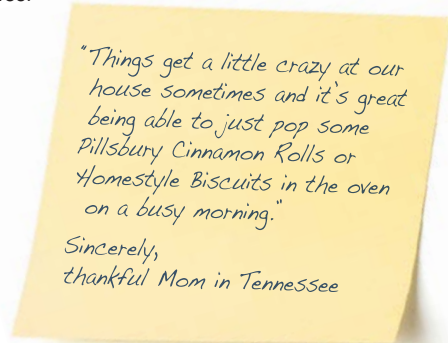 "Things get a little crazy at our
house sometimes and it's great
being able to just pop some
Pillsbury Cinnamon Rolls or
Homestyle Biscuits in the oven
on a busy morning."
Sincerely,
thankful Mom in Tennessee